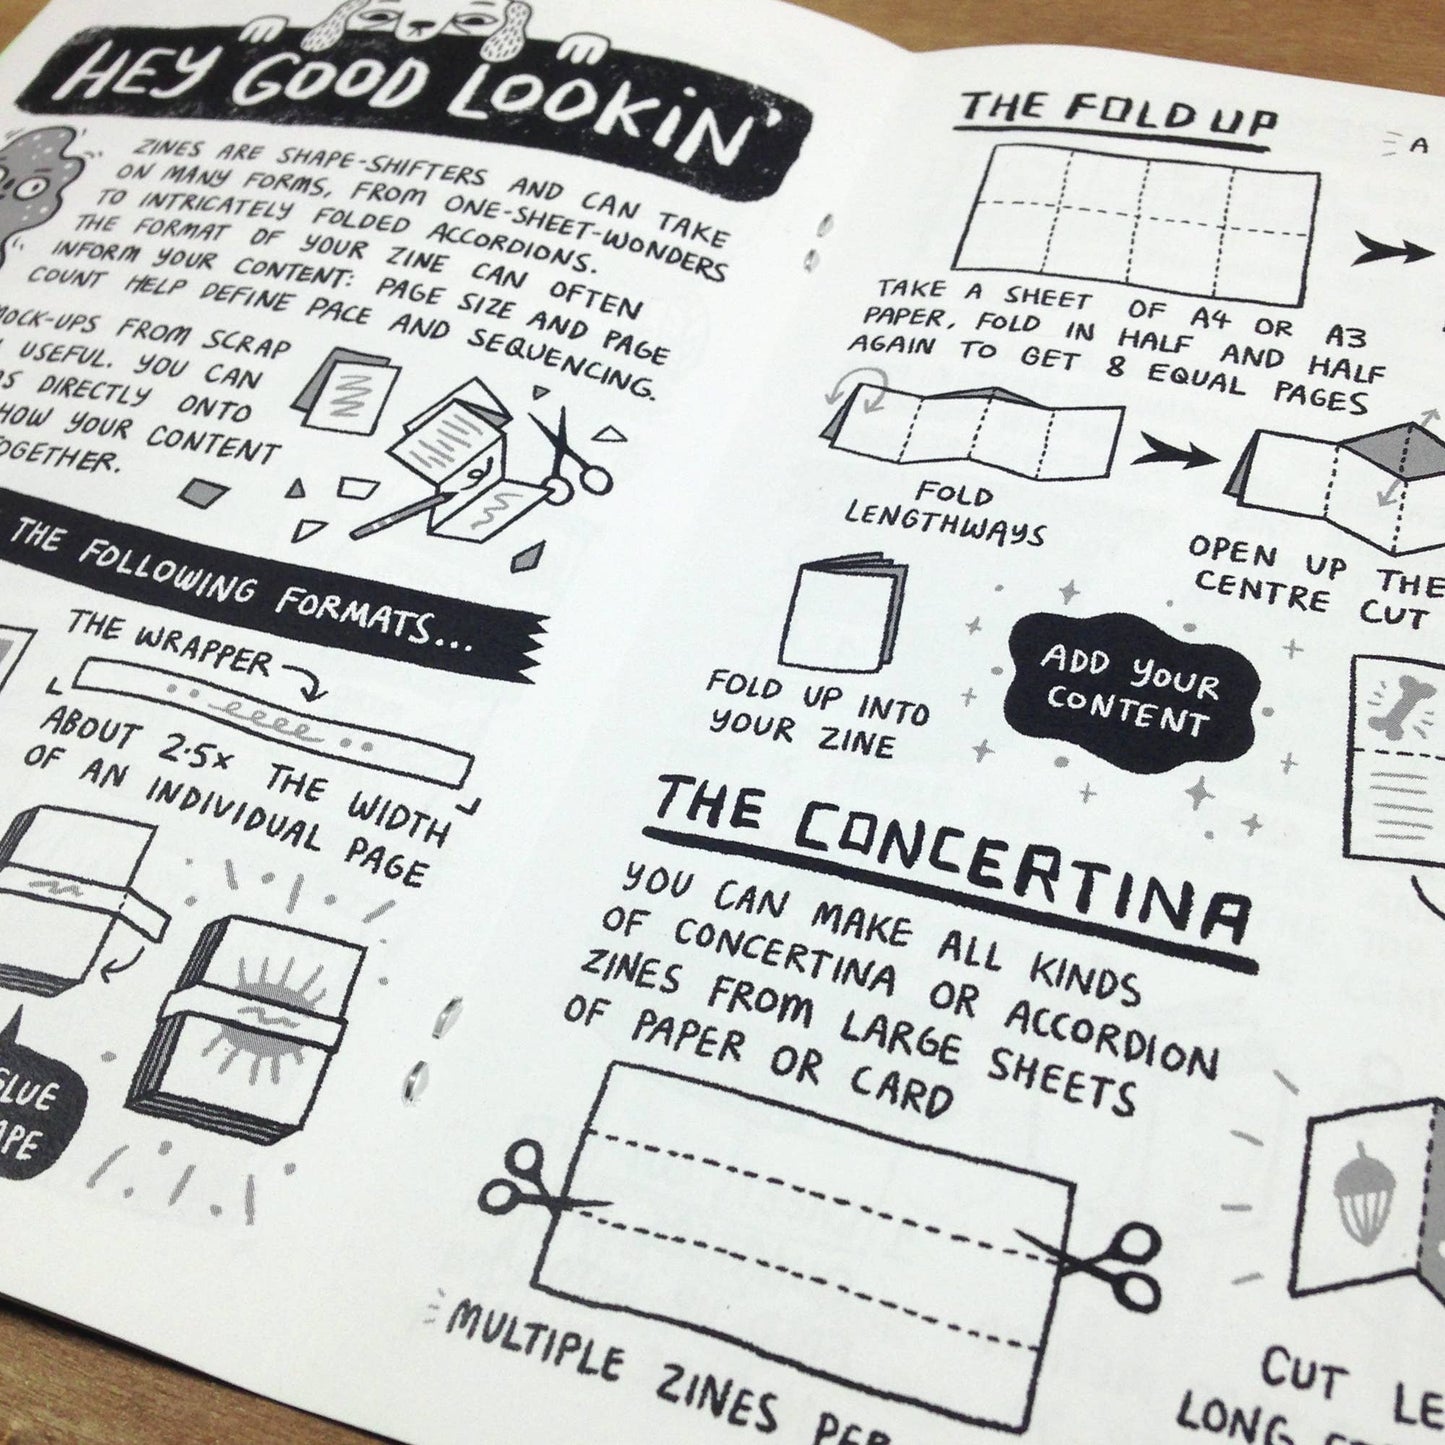 HEY GOOD LOOKIN'
ZINES ARE SHAPE-SHIFTERS AND CAN TAKE
ON MANY FORMS, FROM ONE-SHEET-WONDERS
TO INTRICATELY FOLDED ACCORDIONS.
THE FORMAT OF YOUR ZINE CAN OFTEN
INFORM YOUR CONTENT: PAGE SIZE AND PAGE
COUNT HELP DEFINE PACE AND SEQUENCING.
MOCK-UPS FROM SCRAP
USEFUL. YOU CAN
DIRECTLY ONTO
HOW YOUR CONTENT
TOGETHER.
THE FOLLOWING FORMATS...
THE WRAPPER
ABOUT 2.5x THE WIDTH
OF AN INDIVIDUAL PAGE
GLUE
THE FOLD UP
A
TAKE A SHEET OF A4 OR A3
PAPER, FOLD IN HALF AND HALF
AGAIN TO GET 8 EQUAL PAGES
FOLD
LENGTHWAYS
OPEN UP THE
CENTRE CUT
FOLD UP INTO
YOUR ZINE
ADD YOUR
CONTENT
THE CONCERTINA
YOU CAN MAKE ALL KINDS
OF CONCERTINA OR ACCORDION
ZINES FROM LARGE SHEETS
OF PAPER OR CARD
MULTIPLE ZINES PER
CUT
LONG